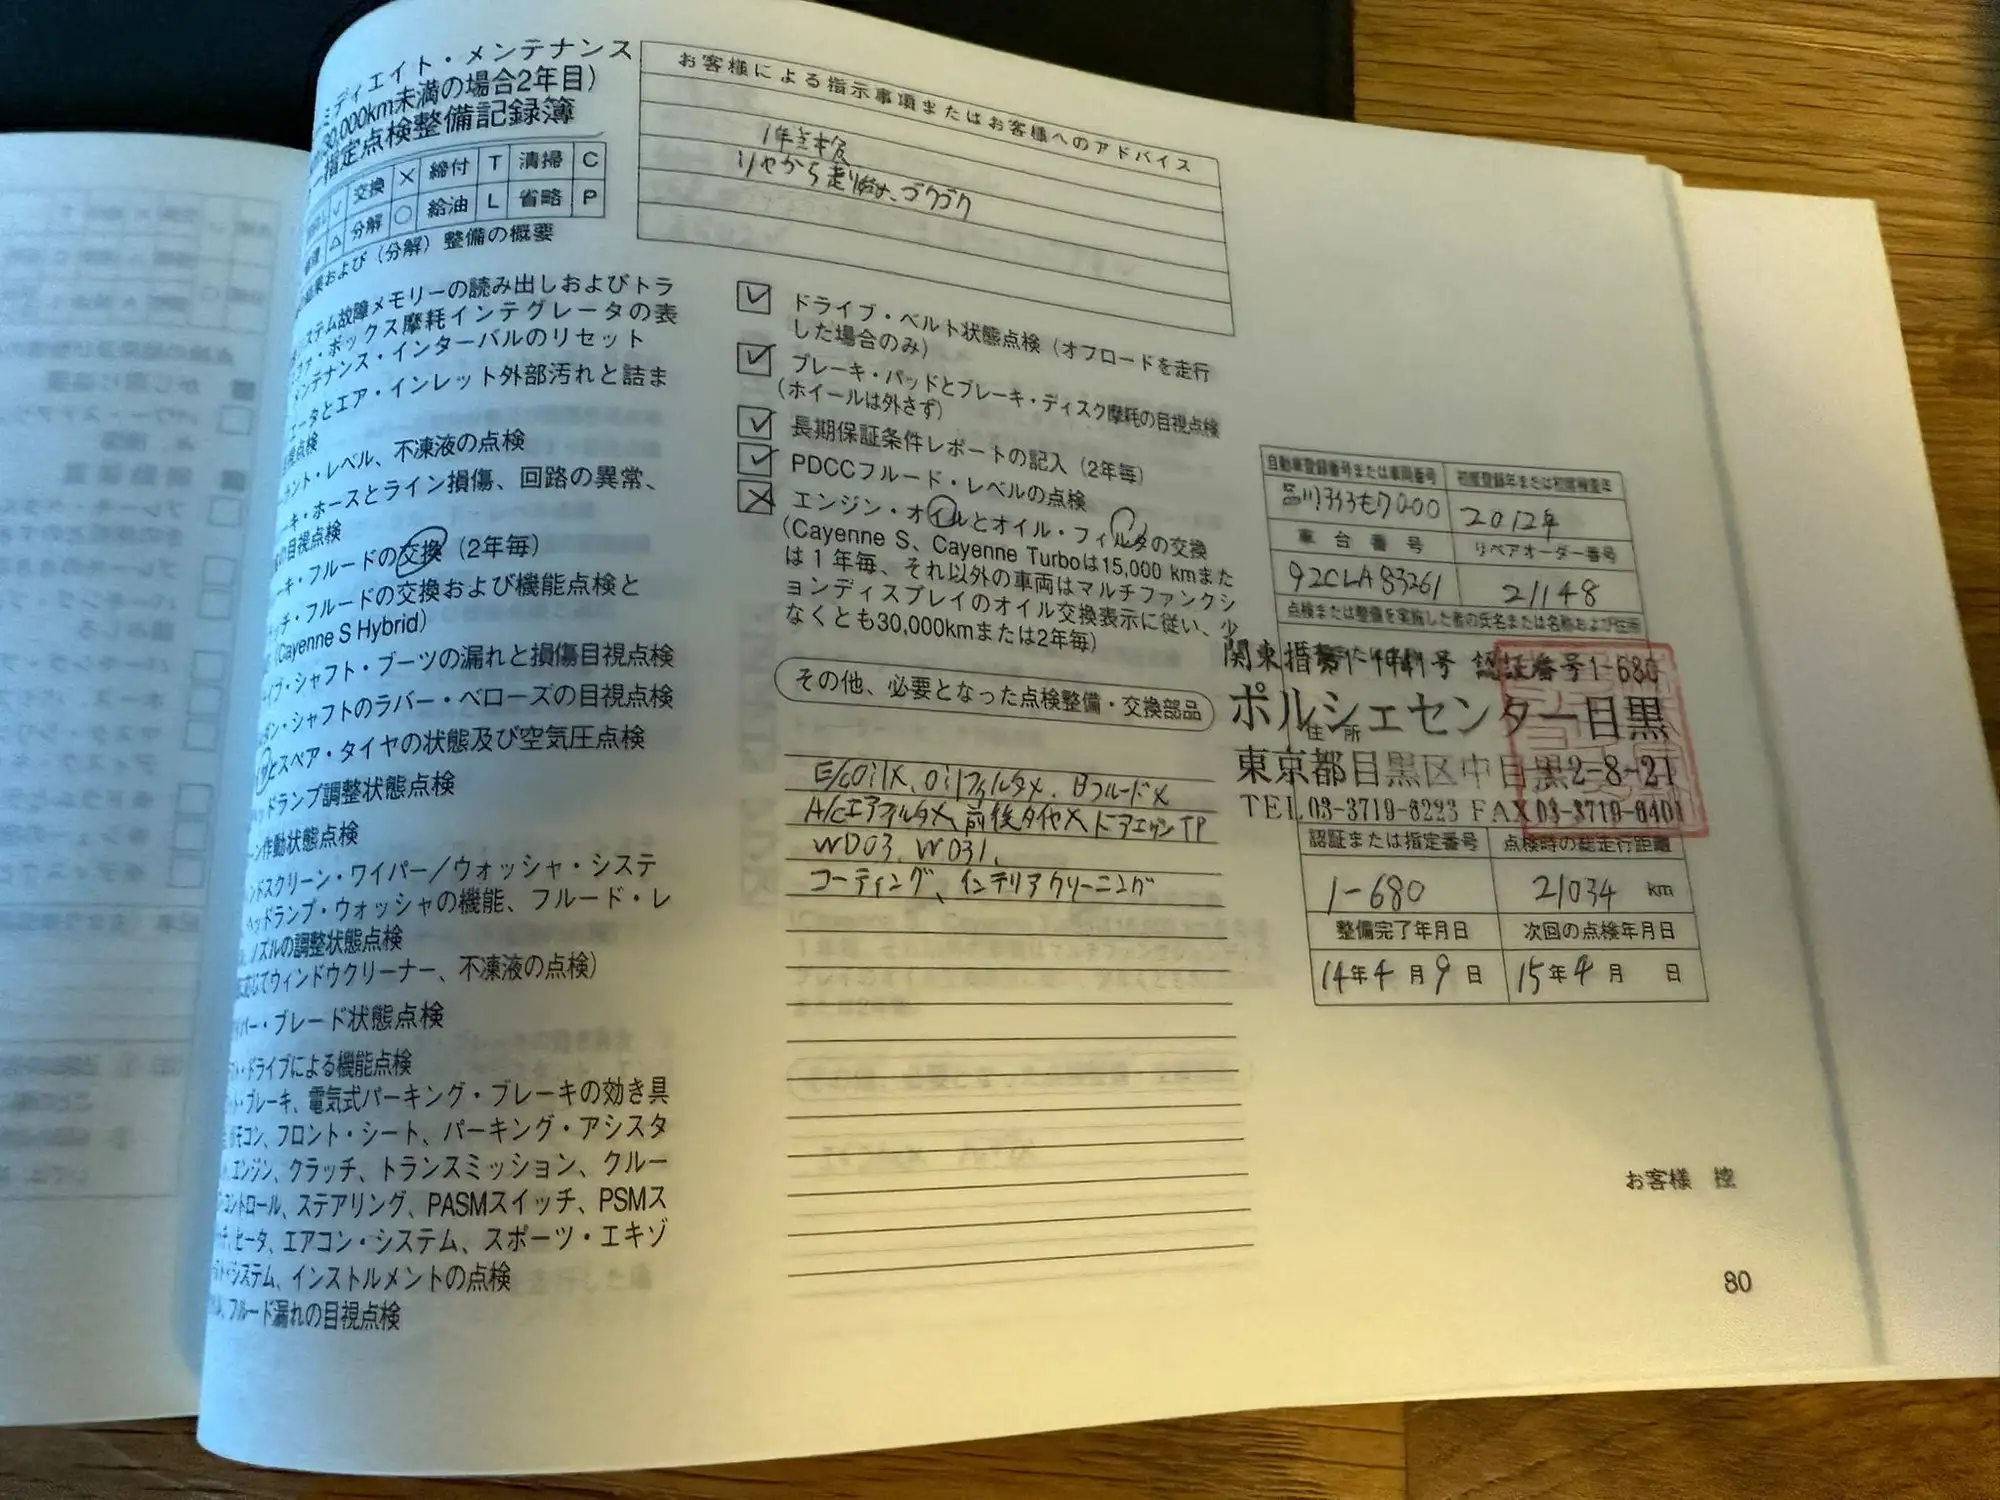 ミディエイト・メンテナンス
30,000km未満の場合2年目)
指定点検整備記録簿
交換 × 締付 T 清掃 C
△ 分解 ○ 給油 L 省略 P
および(分解)整備の概要
ステム故障メモリーの読み出しおよびトラ
ボックス摩耗インテグレータの表
メンテナンス・インターバルのリセット
エータとエア・インレット外部汚れと詰ま
点検
ント・レベル、不凍液の点検
ーキ・ホースとライン損傷、回路の異常、
の目視点検
ーキ・フルードの交換(2年毎)
ッチ・フルードの交換および機能点検と
(Cayenne S Hybrid)
イブ・シャフト・ブーツの漏れと損傷目視点検
ン・シャフトのラバー・ベローズの目視点検
とスペア・タイヤの状態及び空気圧点検
ッドランプ調整状態点検
ーン作動状態点検
ンドスクリーン・ワイパー/ウォッシャ・システ
ッドランプ・ウォッシャの機能、フルード・レ
ノズルの調整状態点検
応じてウィンドウクリーナー、不凍液の点検)
イパー・ブレード状態点検
ト・ドライブによる機能点検
ット・ブレーキ、電気式パーキング・ブレーキの効き具
モコン、フロント・シート、パーキング・アシスタ
エンジン、クラッチ、トランスミッション、クルー
コントロール、ステアリング、PASMスイッチ、PSMス
ヒータ、エアコン・システム、スポーツ・エキゾ
システム、インストルメントの点検
フルード漏れの目視点検
お客様による指示事項またはお客様へのアドバイス
1年点検
リヤから走り始め、ゴクゴク
ドライブ・ベルト状態点検(オフロードを走行
した場合のみ)
ブレーキ・パッドとブレーキ・ディスク摩耗の目視点検
(ホイールは外さず)
長期保証条件レポートの記入(2年毎)
PDCCフルード・レベルの点検
エンジン・オイルとオイル・フィルタの交換
(Cayenne S、Cayenne Turboは15,000 kmまた
は1年毎、それ以外の車両はマルチファンクシ
ョンディスプレイのオイル交換表示に従い、少
なくとも30,000kmまたは2年毎)
その他、必要となった点検整備・交換部品
E/Goil×、oilフィルタ×、Bフルード×
A/Cエアフィルタ×、前後タイヤ×ドアエッジTP
WD03、WD31、
コーティング、インテリアクリーニング
自動車登録番号または車両番号 初度登録年または初度検査年
品川 も7000 2012年
車台番号 リペアオーダー番号
92CLA83261 21148
点検または整備を実施した者の氏名または名称および住所
認証番号1-680
ポルシェセンター目黒
住所
東京都目黒区中目黒2-8-21
TEL 03-3719-8223 FAX 03-3719-6401
認証または指定番号 点検時の総走行距離
1-680 21034 km
整備完了年月日 次回の点検年月日
14年4月9日 15年4月 日
お客様 控
80